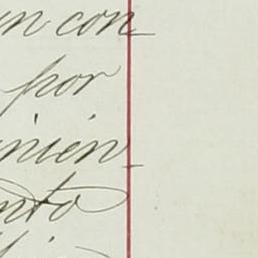 un con
por
nien
nto